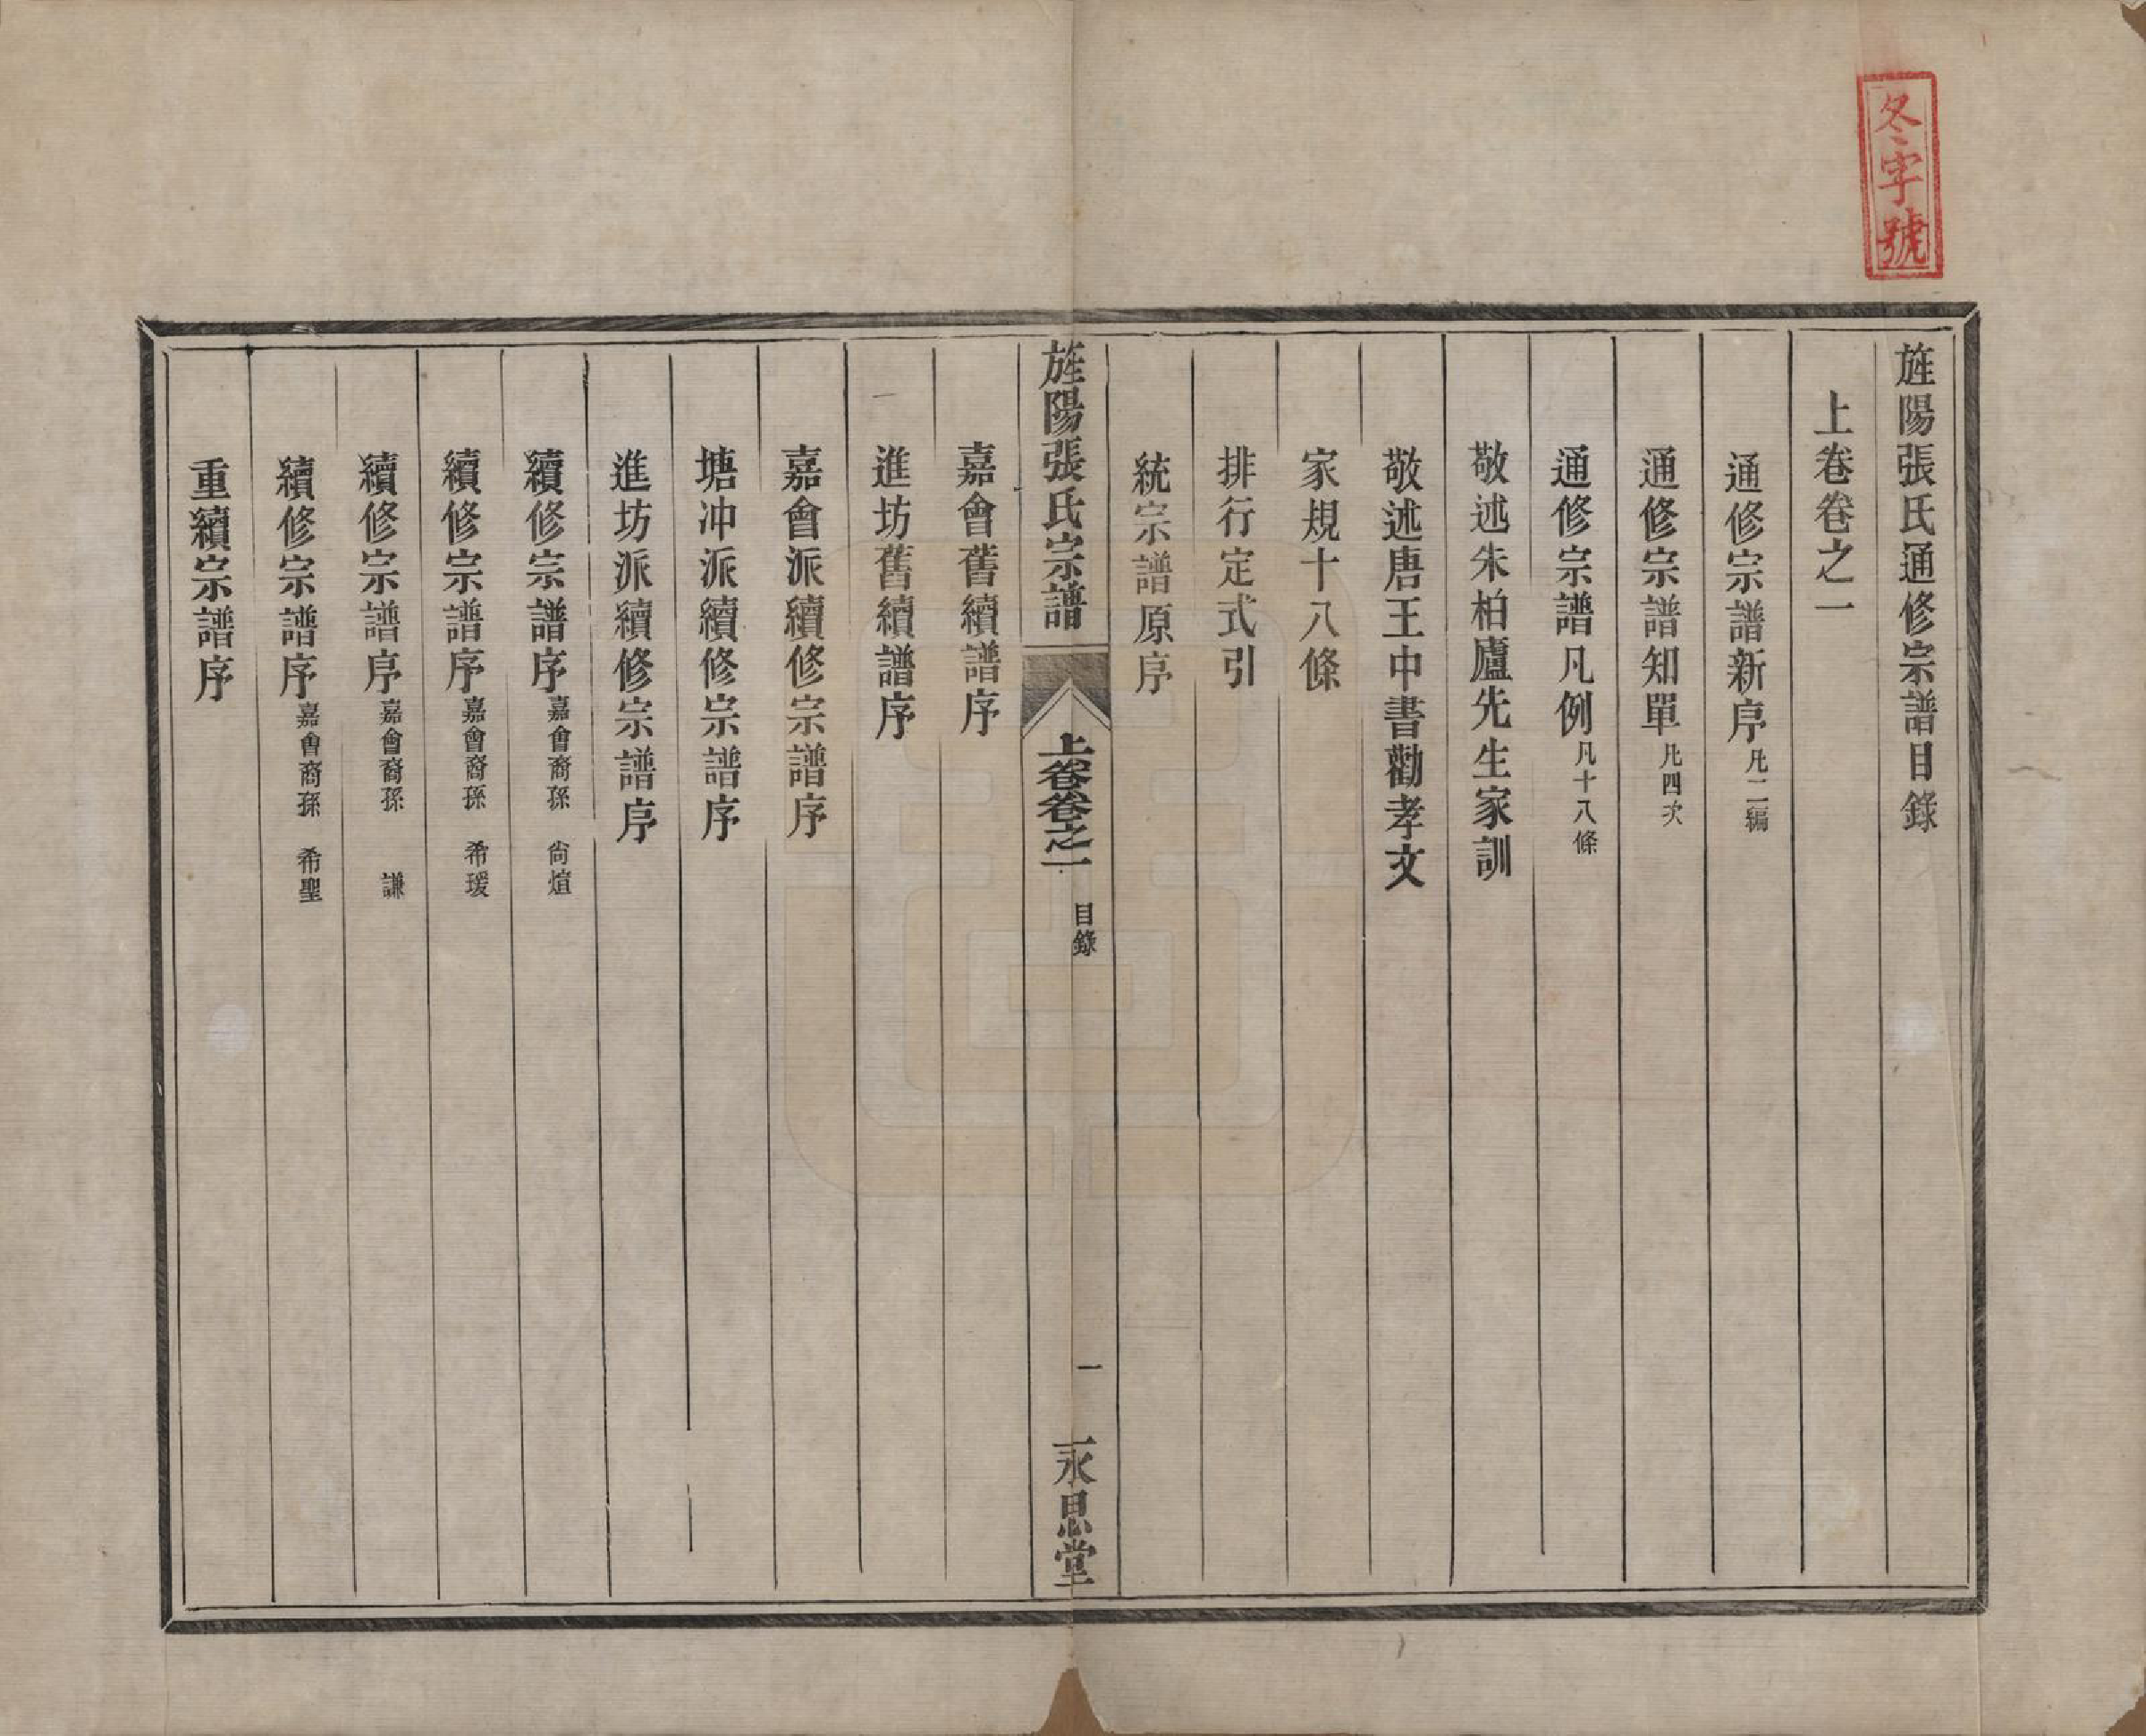 冬字號
旌陽張氏通修宗譜目錄
上卷卷之一
通修宗譜新序凡二編
通修宗譜知單凡四次
通修宗譜凡例凡十八條
敬述朱柏廬先生家訓
敬述唐王中書勸孝文
家規十八條
排行定式引
統宗譜原序
旌陽張氏宗譜
上卷卷之一
目錄
一
永思堂
嘉會舊續譜序
進坊舊續譜序
嘉會派續修宗譜序
塘冲派續修宗譜序
進坊派續修宗譜序
續修宗譜序嘉會裔孫 尙煊
續修宗譜序嘉會裔孫 希瑗
續修宗譜序嘉會裔孫 謙
續修宗譜序嘉會裔孫 希聖
重續宗譜序